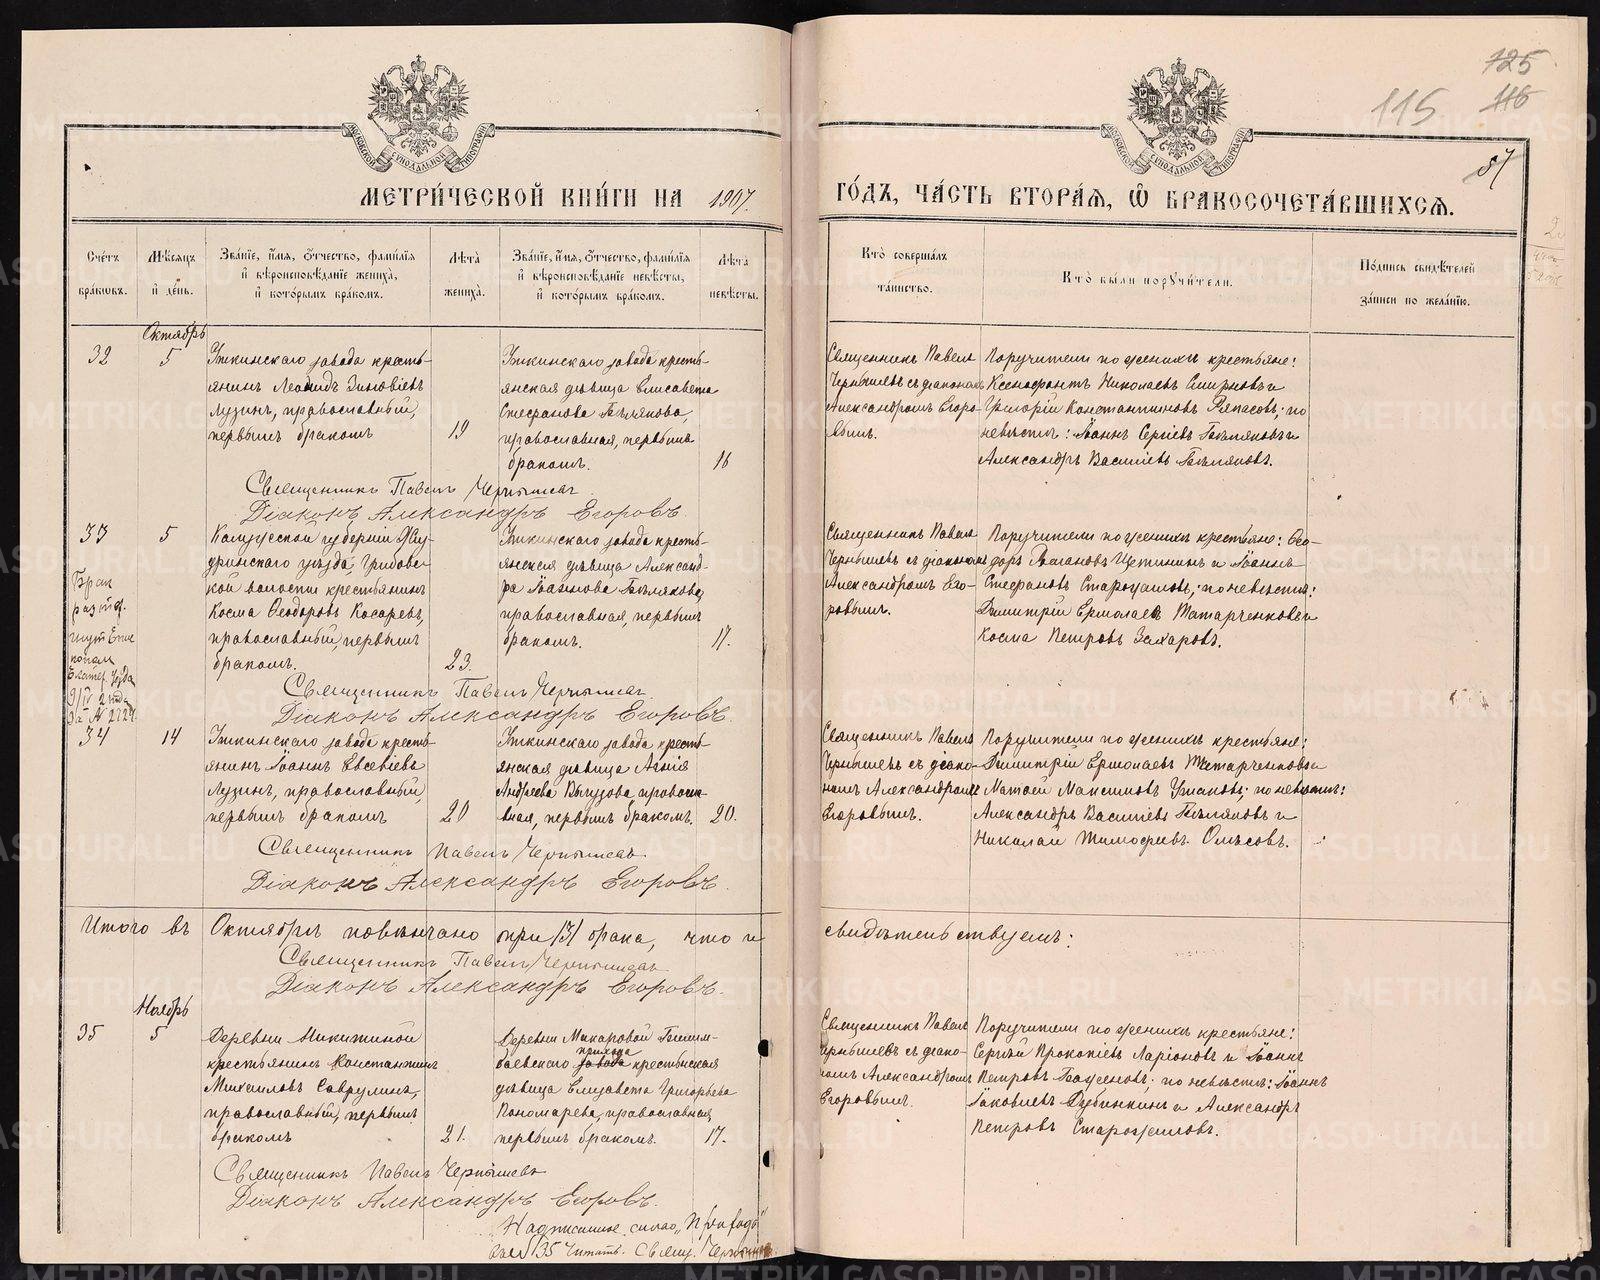 125
115 116
57
МЕТРИ́ЧЕСКОЙ КНИ́ГИ НА 1907.
ГО́ДЪ, ЧА́СТЬ ВТОРА́Ѧ, Ѽ БРАКОСОЧЕТА́ВШИХСѦ.
МОСКОВСКОЙ СУНОДАЛЬНОЙ ТИПОГРАФІИ
МОСКОВСКОЙ СУНОДАЛЬНОЙ ТИПОГРАФІИ
Сче́тъ бра́кωвъ.
Мѣ́сѧцъ и҆ де́нь.
Зва́нїе, и҆́мѧ, ѻ҆́тчество, фами́лїѧ и҆ вѣроисповѣ́данїе жениха̀, и҆ кото́рымъ бра́комъ.
Лѣ́та жениха̀.
Зва́нїе, и҆́мѧ, ѻ҆́тчество, фами́лїѧ и҆ вѣроисповѣ́данїе невѣ́сты, и҆ кото́рымъ бра́комъ.
Лѣ́та невѣ́сты.
Кто̀ соверша́лъ та́инство.
Кто̀ бы́ли порꙋчи́тели.
По́дпись свидѣ́телей за́писи по жела́нїю.
Октябрь
32
5
Уткинскаго завода кресть-
янинъ Леонидъ Зиновіевъ
Лузинъ, православный,
первымъ бракомъ
19
Уткинскаго завода кресть-
янская дѣвица Елисавета
Стефанова Бѣлякова,
православная, первымъ
бракомъ.
16
Священникъ Павелъ
Чернышевъ съ діакономъ
Александромъ Егоро-
вымъ.
Поручители по женихѣ крестьяне:
Ксенофонтъ Николаевъ Смирновъ и
Григорій Константиновъ Ряпасовъ; по
невѣстѣ: Іоаннъ Сергіевъ Бѣляковъ и
Александръ Василіевъ Бѣляковъ.
Священникъ Павелъ Чернышевъ
Діаконъ Александръ Егоровъ
33
5
Бракъ
Калужской губерніи Жиз-
дринскаго уѣзда,
кой волости крестьянинъ
Косма Ѳеодоровъ Косаревъ,
православный, первымъ
бракомъ.
23.
Уткинскаго завода кресть-
янская дѣвица Александ-
ра Іоаннова Бѣлякова,
православная, первымъ
бракомъ.
17.
Священникъ Павелъ
Чернышевъ съ діакономъ
Александромъ Его-
ровымъ.
Поручители по женихѣ крестьяне: Ѳео-
доръ Романовъ Щетининъ и Іоаннъ
Стефановъ Старожиловъ; по невѣстѣ:
Димитрій Ермолаевъ Татарченковъ и
Косма Петровъ Захаровъ.
Священникъ Павелъ Чернышевъ
Діаконъ Александръ Егоровъ.
34
14
Уткинскаго завода кресть-
янинъ Іоаннъ Евсевіевъ
Лузинъ, православный,
первымъ бракомъ
20
Уткинскаго завода кресть-
янская дѣвица Агнія
Андреева Вычугова, правосла-
вная, первымъ бракомъ.
20.
Священникъ Павелъ
Чернышевъ съ діако-
номъ Александромъ
Егоровымъ.
Поручители по женихѣ крестьяне:
Димитрій Ермолаевъ Татарченковъ и
Матѳей Максимовъ Ушаковъ; по невѣстѣ:
Александръ Василіевъ Бѣляковъ и
Николай Тимофіевъ Олѣсовъ.
Священникъ Павелъ Чернышевъ
Діаконъ Александръ Егоровъ.
Итого въ Октябрѣ повѣнчано три /3/ брака, что и
свидѣтельствуемъ:
Священникъ Павелъ Чернышевъ
Діаконъ Александръ Егоровъ.
Ноябрь
35
5
Деревни Никитиной
крестьянинъ Константинъ
Михаиловъ Саврулинъ,
православный, первымъ
бракомъ
21.
Деревни Макаровой Билим-
прихода
баевскаго завода крестьянская
дѣвица Елизавета Григорьева
Пономарева, православная,
первымъ бракомъ.
17.
Священникъ Павелъ
Чернышевъ съ діако-
номъ Александромъ
Егоровымъ.
Поручители по женихѣ крестьяне:
Сергѣй Прокопіевъ Ларіоновъ и Іоаннъ
Петровъ Баженовъ; по невѣстѣ: Іоаннъ
Іаковлевъ Дубинкинъ и Александръ
Петровъ Старожиловъ.
Священникъ Павелъ Чернышевъ
Діаконъ Александръ Егоровъ.
Надписанное слово „прихода“
35 читать. Свящ. Чернышевъ
METRIKI.GASO-URAL.RU